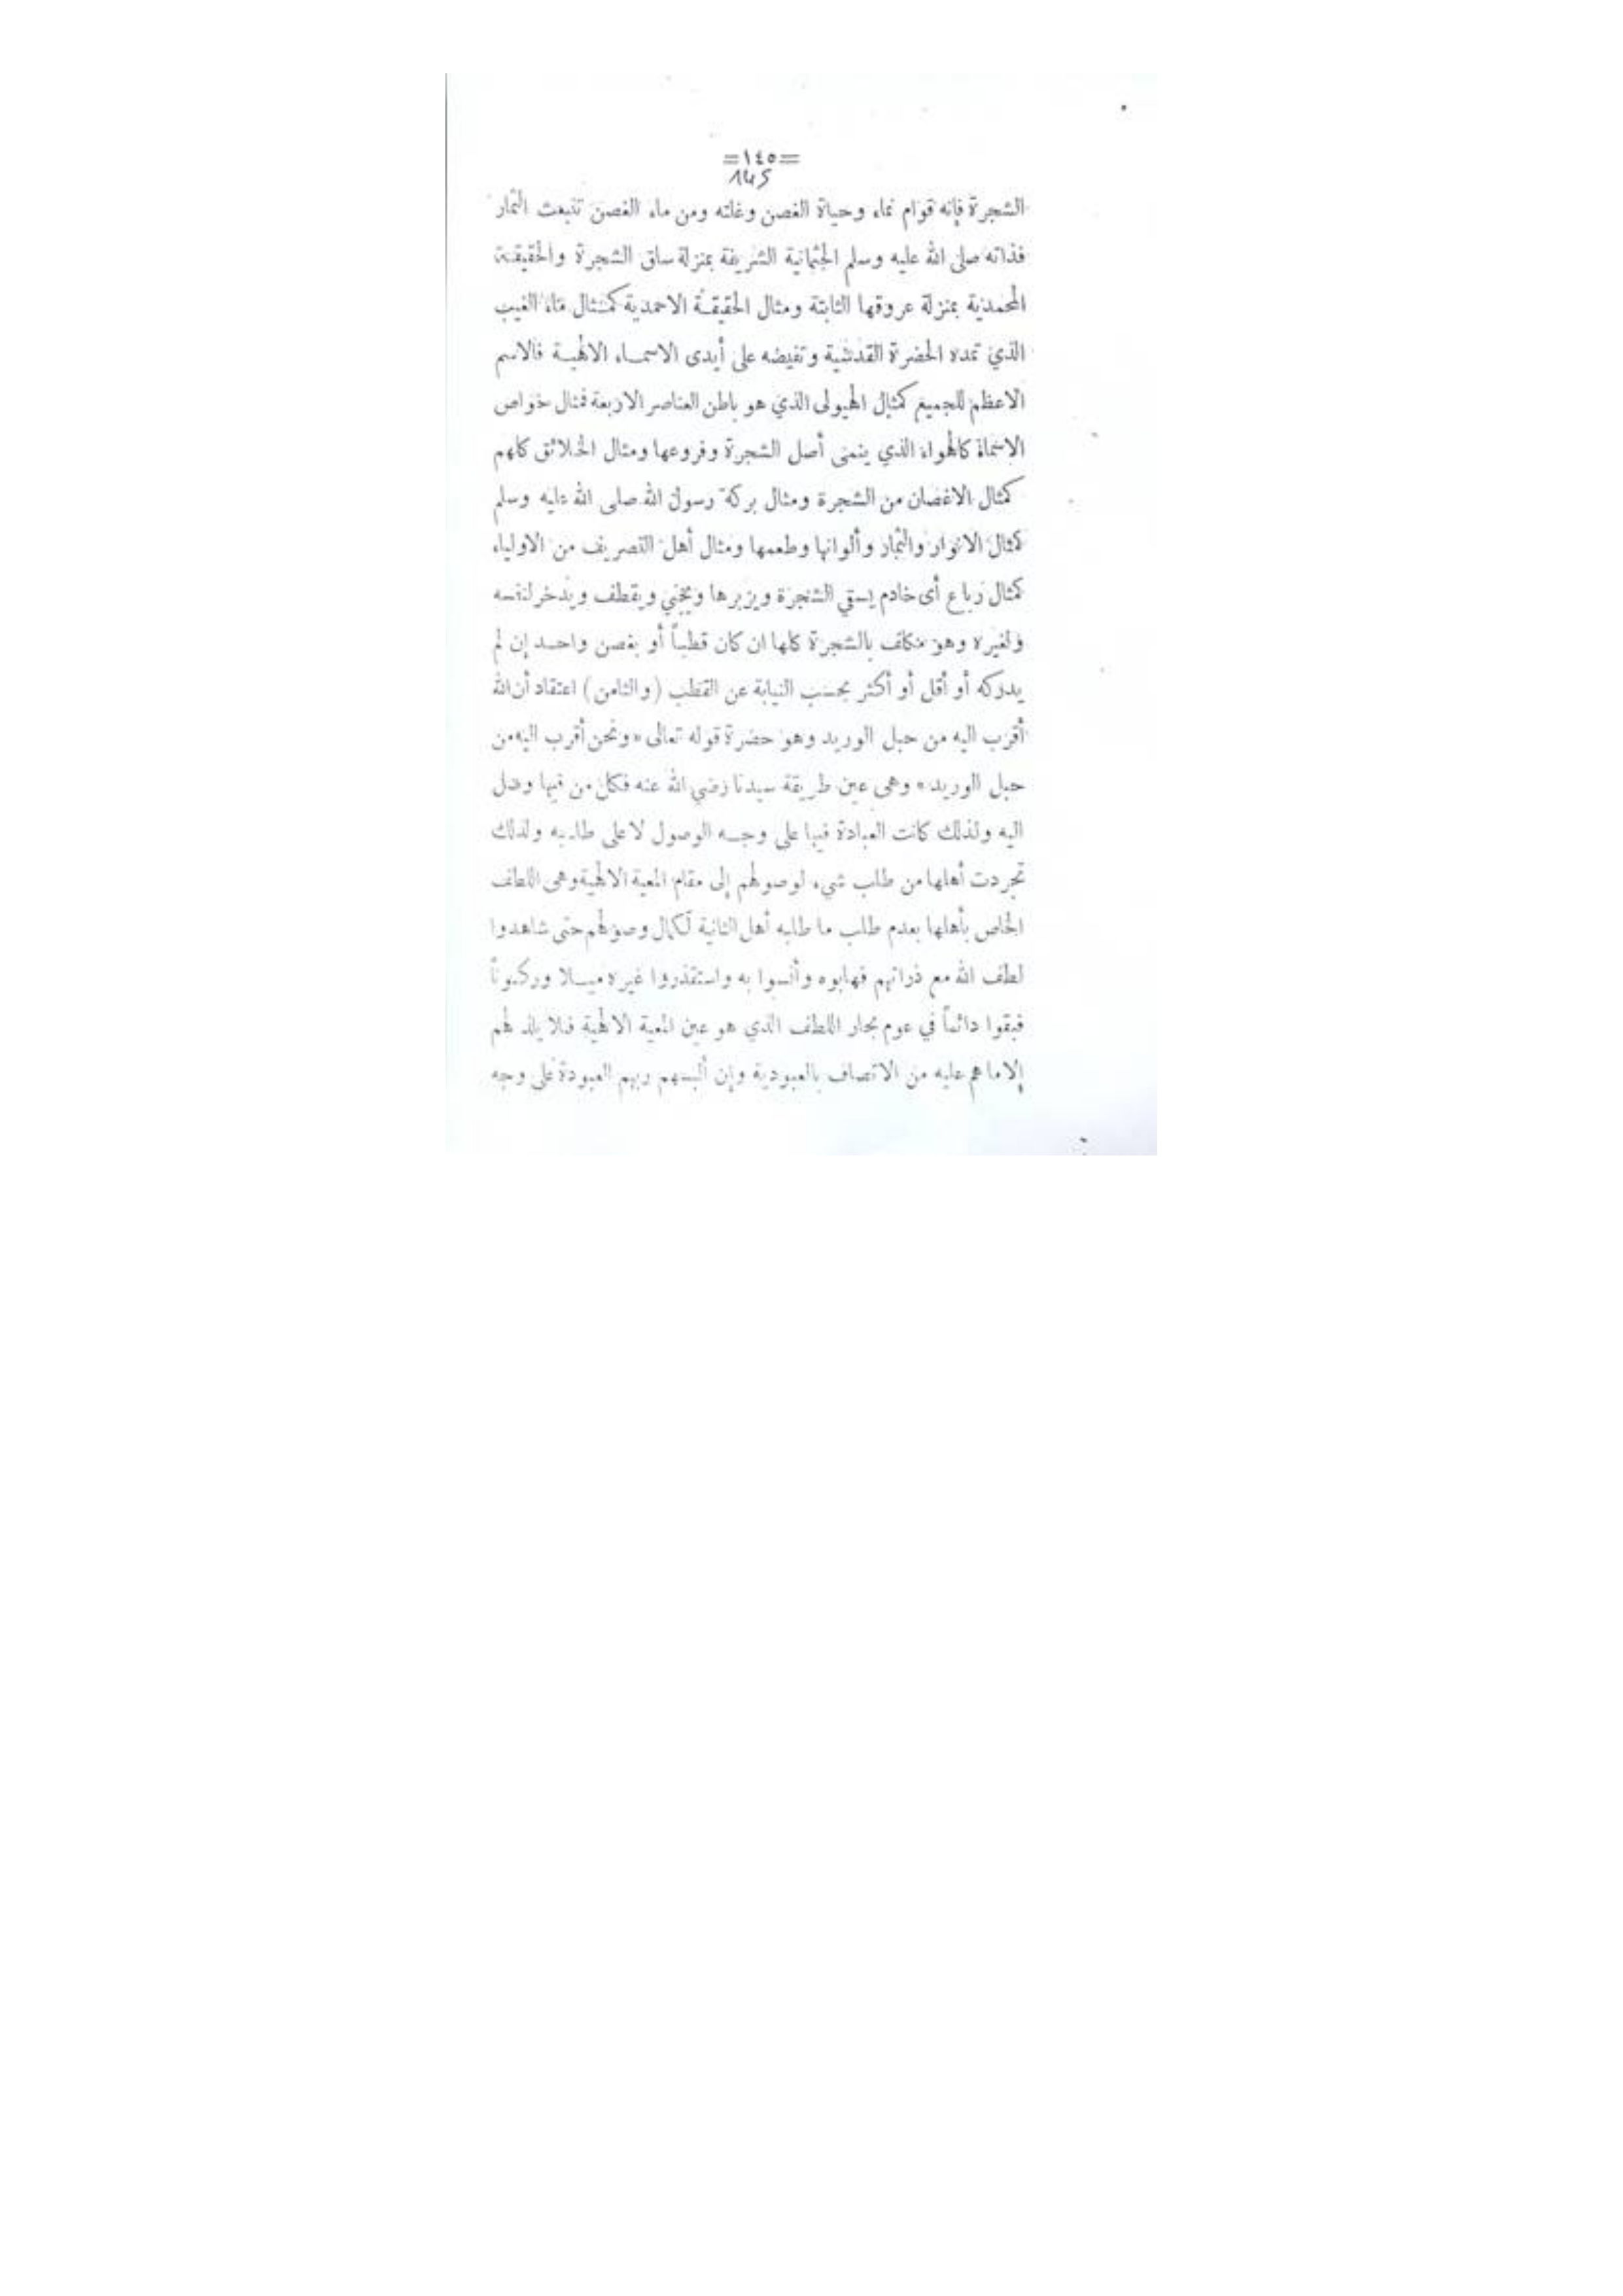 =١٤٥=
145
الشجرة فإنه قوام نماء وحياة الغصن وغلته ومن ماء الغصن تنبعث الثمار
فذاته صلى الله عليه وسلم الجثمانية الشريفة بمنزلة ساق الشجرة والحقيقة
المحمدية بمنزلة عروقها الثابتة ومثال الحقيقة الاحمدية كمثال ماء الغيب
الذي تمده الحضرة القدسية وتفيضه على أيدى الاسماء الالهية فالاسم
الاعظم للجميع كمثال الهيولى الذي هو باطن العناصر الاربعة فمثال خواص
الاسماء كالهواء الذي ينمى أصل الشجرة وفروعها ومثال الخلائق كلهم
كمثال الاغصان من الشجرة ومثال بركة رسول الله صلى الله عليه وسلم
كمثال الانوار والثمار وألوانها وطعمها ومثال أهل التصريف من الاولياء
كمثال رباع أى خادم يسقي الشجرة ويزبرها ويجني ويقطف ويدخر لنفسه
ولغيره وهو مكلف بالشجرة كلها ان كان قطباً أو بغصن واحد إن لم
يدركه أو أقل أو أكثر بحسب النيابة عن القطب (والثامن) اعتقاد أن الله
أقرب اليه من حبل الوريد وهو حضرة قوله تعالى «ونحن أقرب اليه من
حبل الوريد» وهى عين طريقة سيدنا رضي الله عنه فكل من فيها وصل
اليه ولذلك كانت العبادة فيها على وجه الوصول لا على طلبه ولذلك
تجردت أهلها من طلب شيء لوصولهم إلى مقام المعية الالهية وهى اللطف
الخاص بأهلها بعدم طلب ما طلبه أهل الثانية لكمال وصولهم حتى شاهدوا
لطف الله مع ذراتهم فهابوه وأنسوا به واستقذروا غيره ميلا وركوناً
فبقوا دائماً في عوم بحار اللطف الذي هو عين المعية الالهية فلا يلذ لهم
إلا ما هم عليه من الاتصاف بالعبودية وإن ألبسهم ربهم العبودة على وجه